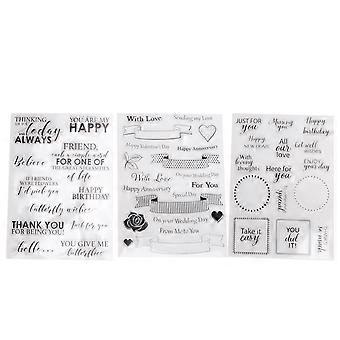 THINKING
OF YOU
today
AND
ALWAYS
YOU ARE MY
HAPPY
FRIEND,
such a simple word
FOR ONE OF
Believe
IF FRIENDS
WERE FLOWERS
I'd pick you
HAPPY
BIRTHDAY
butterfly wishes
THANK YOU
FOR BEING YOU!
Just for you
hello...
YOU GIVE ME
butterflies
With Love
Sending my Love
Happy Valentine's Day
Happy Anniversary
With Love
Wedding Day
Happy Anniversary
For You
Special Day
On your Wedding Day
From Me to You
On your Wedding Day
JUST FOR
you
Missing
you
Happy
birthday
Happy
NEW HOME
All
our
love
Get well
wishes
With
loving
thoughts
Here for
you
ENJOY
your day
special
Take it
easy
YOU
did
IT!